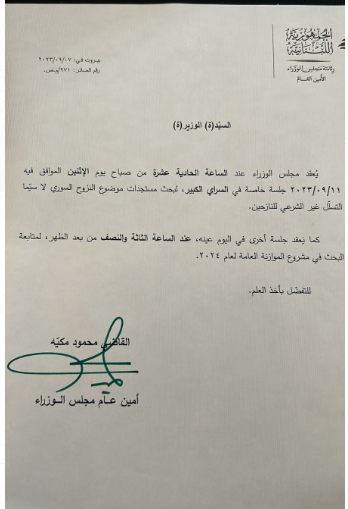 الجمهورية
اللبنانية
رئاسة مجلس الوزراء
الأمين العام
بيروت في: ٢٠٢٣/٠٩/٠٧
رقم الصادر: ٢٧١/ص
السيّد(ة) الوزير(ة)
يُعقد مجلس الوزراء عند الساعة الحادية عشرة من صباح يوم الإثنين الموافق فيه
٢٠٢٣/٠٩/١١ جلسة خاصة في السراي الكبير، لبحث مستجدات موضوع النزوح السوري لا سيّما
التسلّل غير الشرعي للنازحين.
كما يَعقد جلسة أخرى في اليوم عينه، عند الساعة الثالثة والنصف من بعد الظهر، لمتابعة
البحث في مشروع الموازنة العامة لعام ٢٠٢٤.
للتفضّل بأخذ العلم.
القاضي محمود مكيّه
أمين عـام مجلس الـوزراء